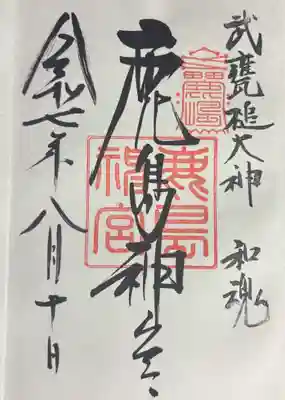 武甕槌大神 和魂
鹿島神宮
鹿島
神宮
令和七年八月十日